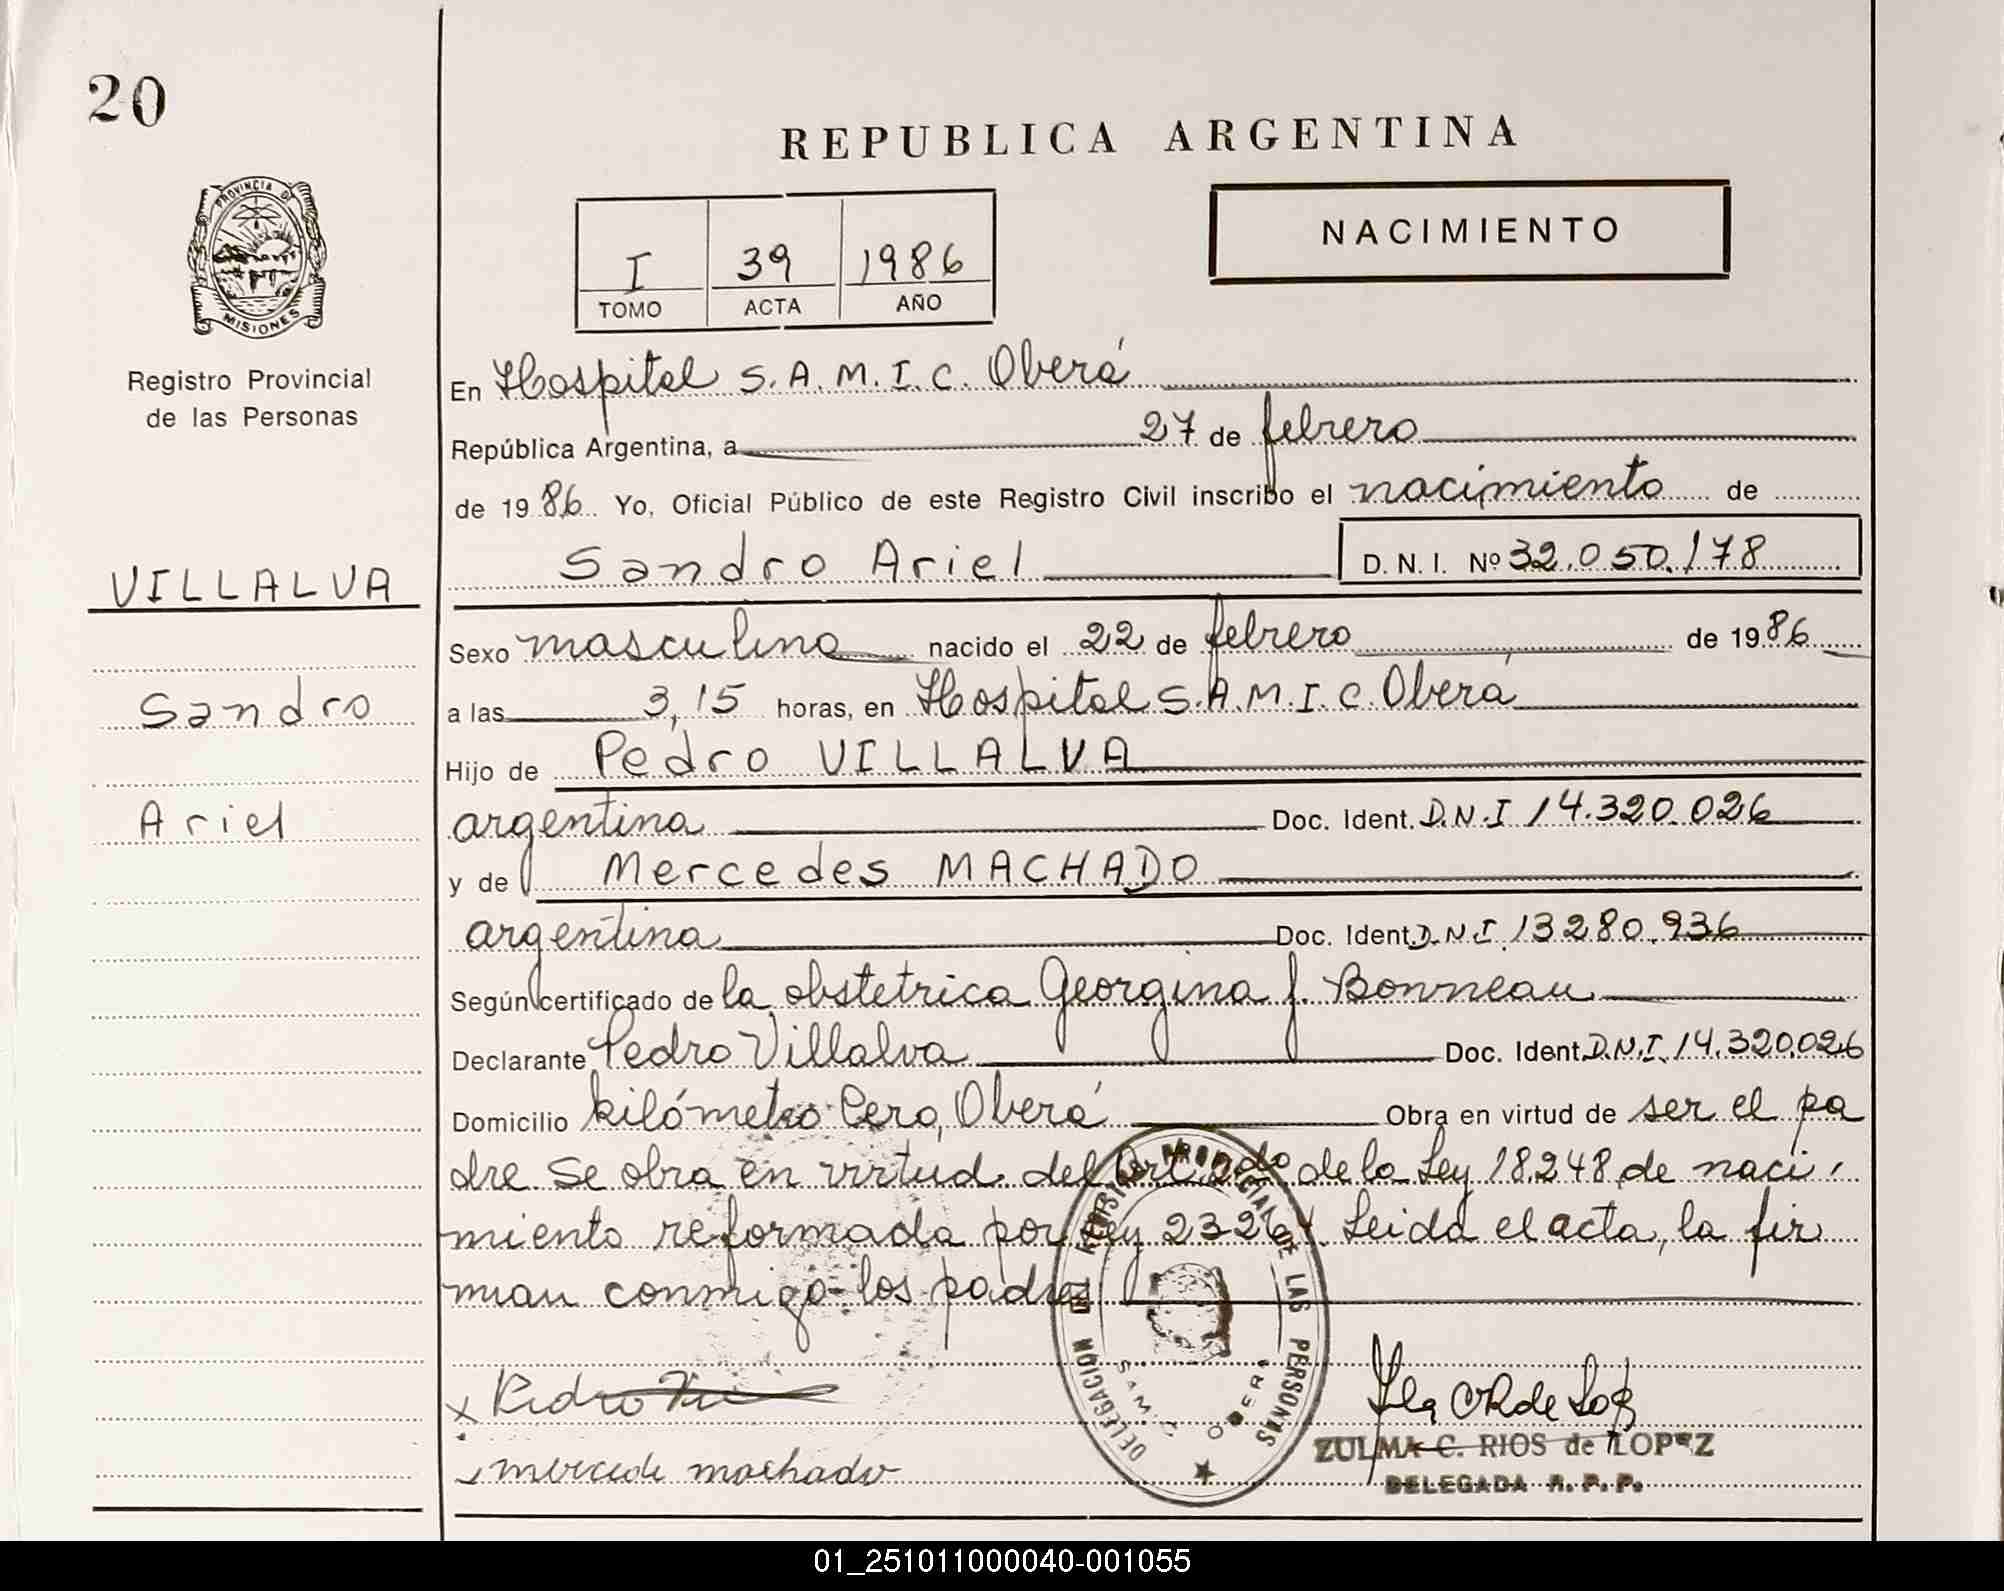 20
REPUBLICA ARGENTINA
PROVINCIA DE
MISIONES
Registro Provincial
de las Personas
I 39 1986
TOMO ACTA AÑO
NACIMIENTO
En Hospital S.A.M.I.C. Oberá
República Argentina, a 27 de febrero
de 1986 Yo, Oficial Público de este Registro Civil inscribo el nacimiento de
Sandro Ariel D. N. I. Nº 32.050.178
VILLALVA
Sandro
Ariel
Sexo masculino nacido el 22 de febrero de 1986
a las 3,15 horas, en Hospital S.A.M.I.C. Oberá
Hijo de Pedro VILLALVA
argentina Doc. Ident. D.N.I 14.320.026
y de Mercedes MACHADO
argentina Doc. Ident. D.N.I. 13280.936
Según certificado de la obstetrica Georgina J. Bonneau
Declarante Pedro Villalva Doc. Ident. D.N.I. 14.320.026
Domicilio kilómetro Cero, Oberá Obra en virtud de ser el pa
dre. Se obra en virtud del Art. 2do de la Ley 18.248, de naci
miento reformada por Ley 23264. Leida el acta, la fir
man conmigo los padres
DELEGACION DEL REGISTRO PROVINCIAL DE LAS PERSONAS
SAMIC OBERA
x Pedro
x mercede machado
ZULMA C. RIOS de LOPEZ
DELEGADA R. P. P.
01_251011000040-001055